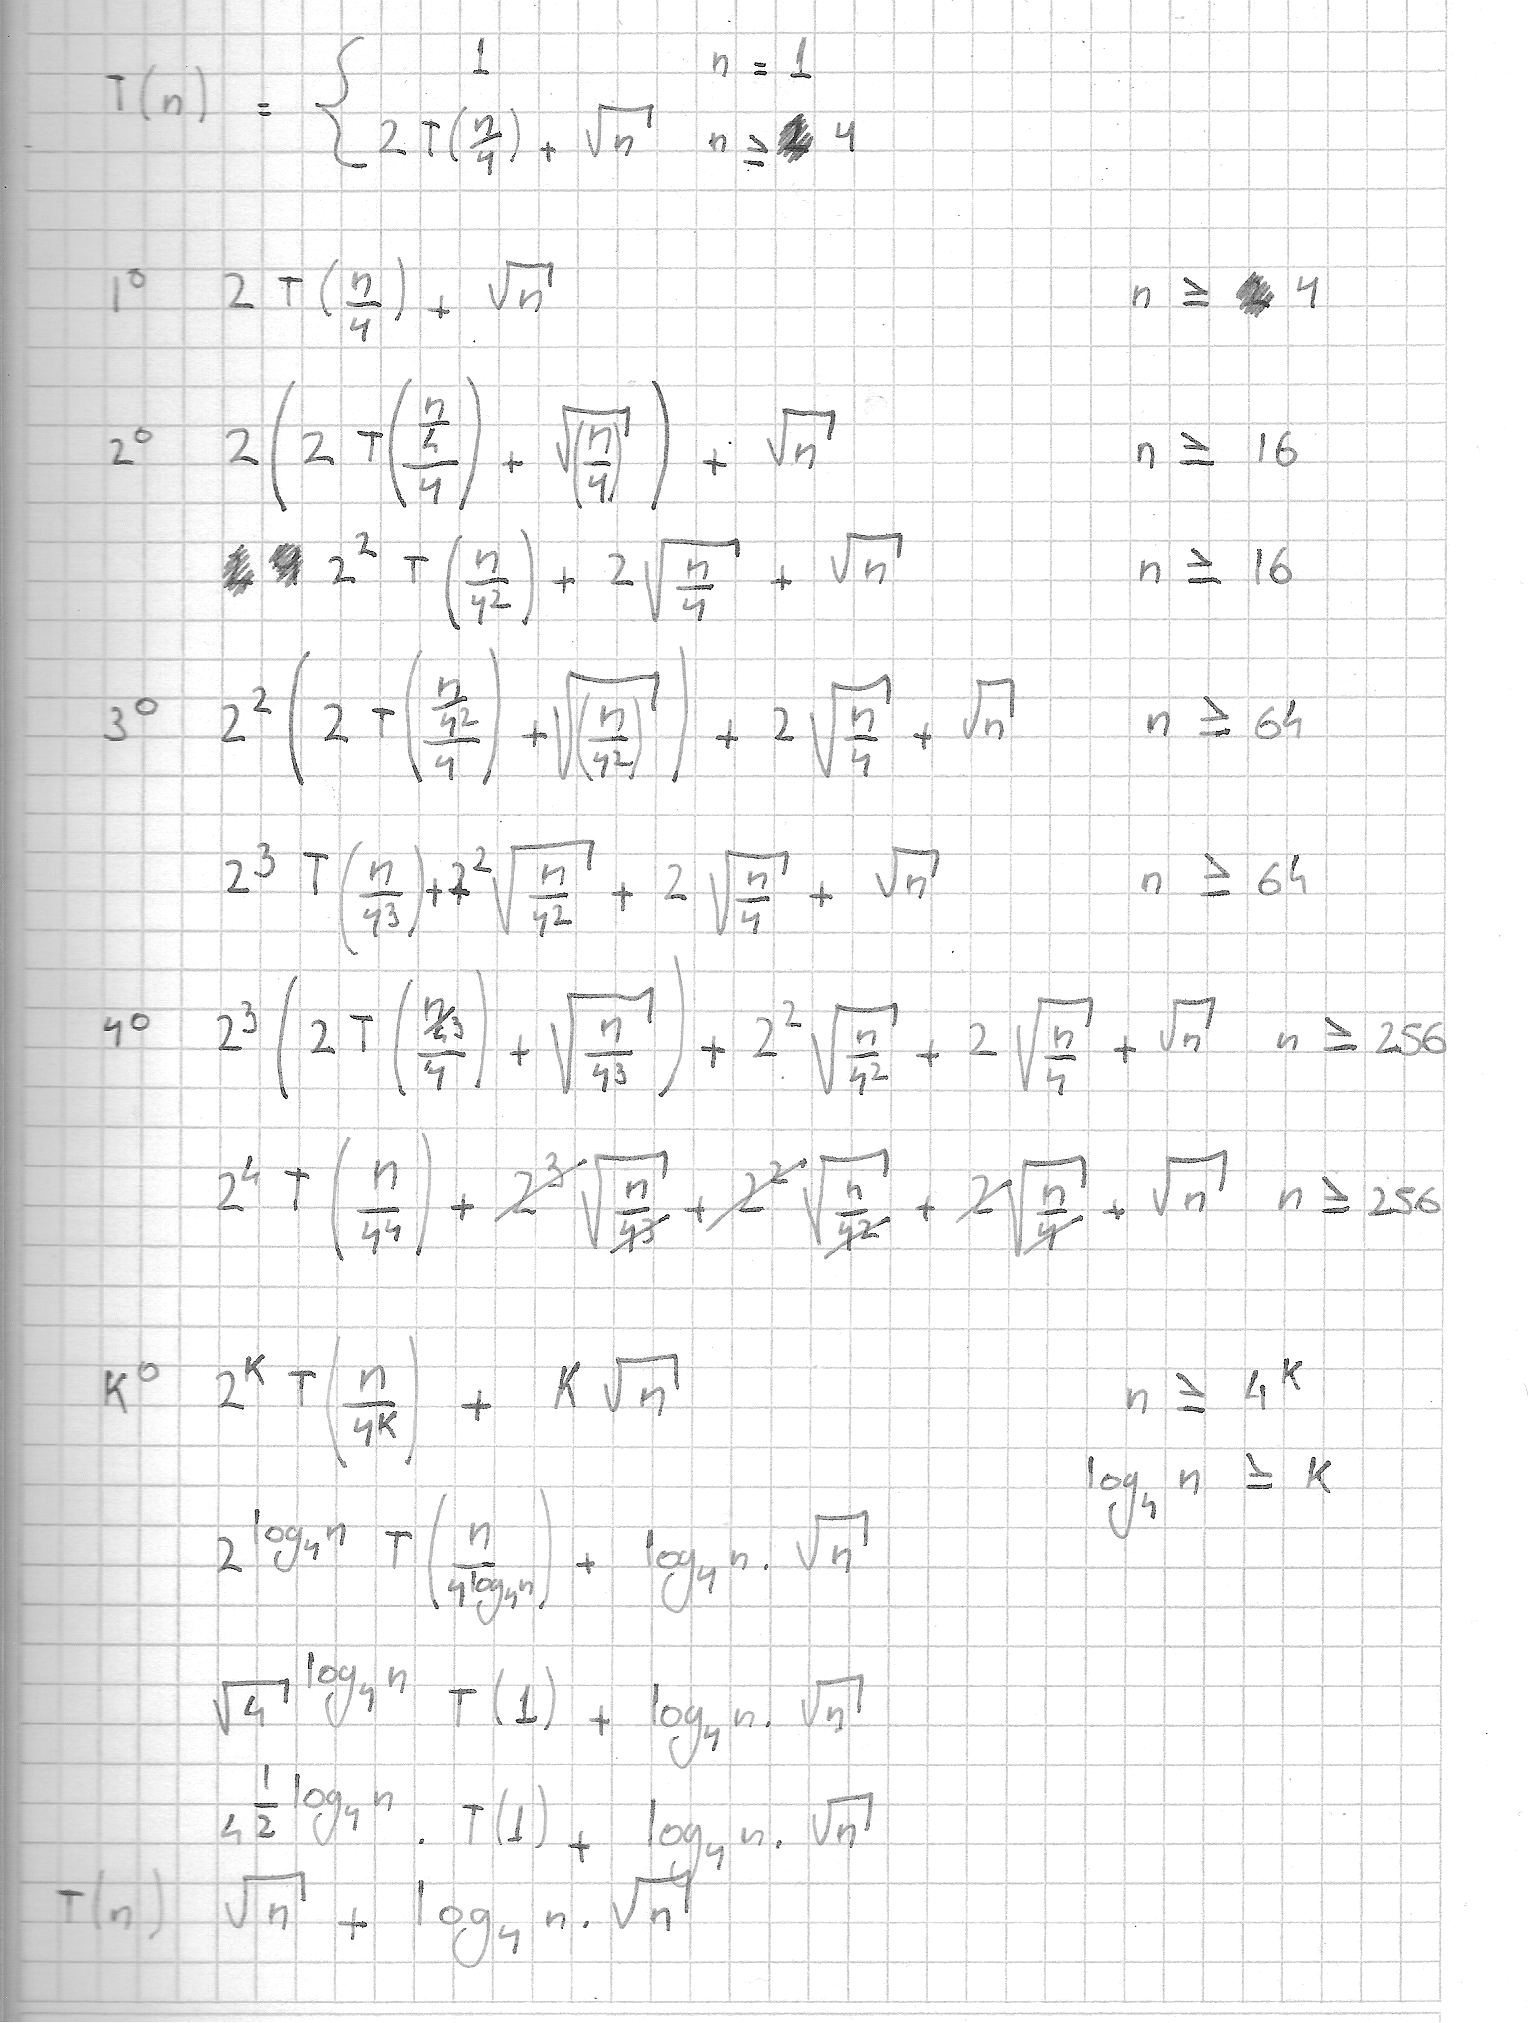 T(n) = { 1 n = 1
2T(n/4) + √n n ≥ 4
1° 2T(n/4) + √n n ≥ 4
2° 2(2T((n/4)/4) + √(n/4)) + √n n ≥ 16
2² T(n/4²) + 2√(n/4) + √n n ≥ 16
3° 2²(2T((n/4²)/4) + √(n/4²)) + 2√(n/4) + √n n ≥ 64
2³ T(n/4³) + 2²√(n/4²) + 2√(n/4) + √n n ≥ 64
4° 2³(2T((n/4³)/4) + √(n/4³)) + 2²√(n/4²) + 2√(n/4) + √n n ≥ 256
2⁴ T(n/4⁴) + 2³√(n/4³) + 2²√(n/4²) + 2√(n/4) + √n n ≥ 256
K° 2^K T(n/4^K) + K√n n ≥ 4^K
log₄ n ≥ K
2^(log₄n) T(n/4^(log₄n)) + log₄n . √n
√4^(log₄n) T(1) + log₄n . √n
4^(1/2 log₄n) . T(1) + log₄n . √n
T(n) √n + log₄n . √n